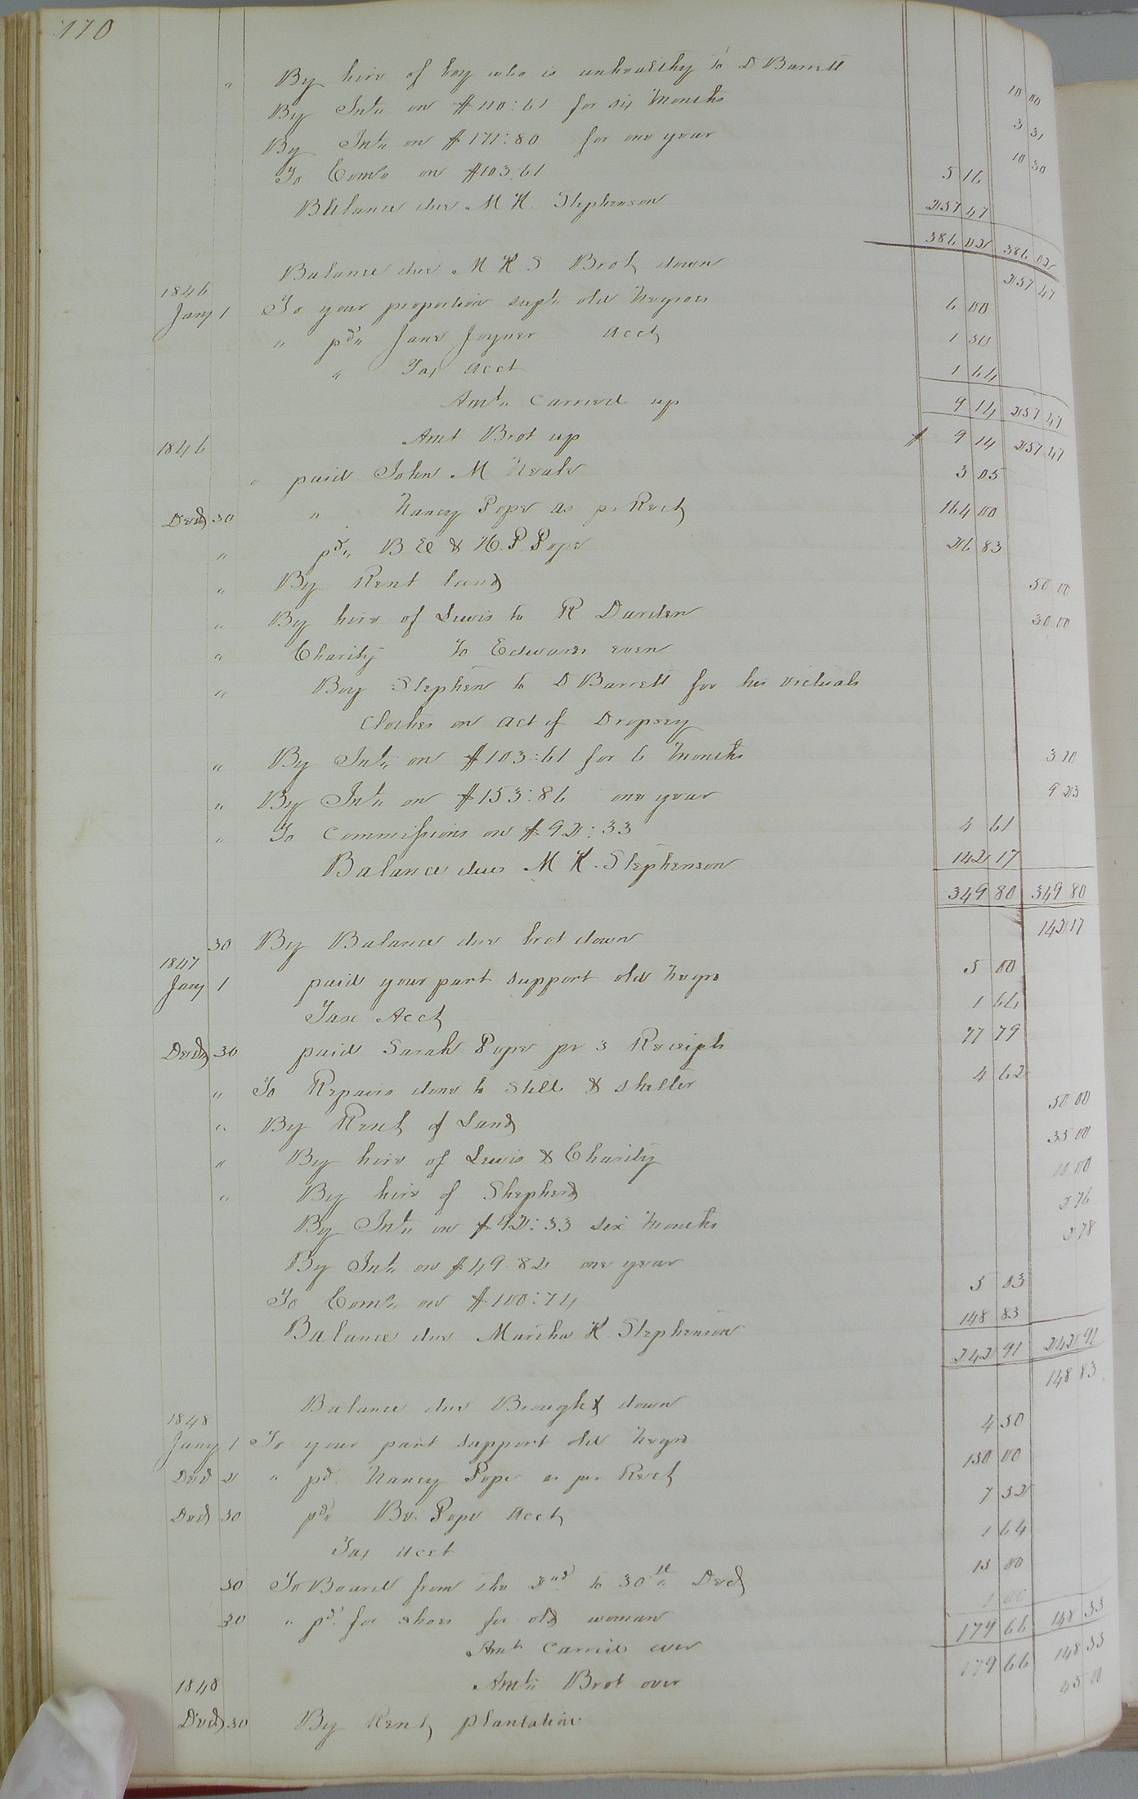 170
" By hire of boy who is unhealthy to D Barrett 10 00
By Int. on $110:61 for six months 3 31
By Int. on $171:80 for one year 10 30
To Coms on $103.61 5 16
Balance due M H Stephenson 257 47
386 02 386 02
Balance due M H S Brot down 257 47
1846
Jany 1 To your proportion supt. old Negroes 6 00
" pd. Jane Joyner acct 1 50
" Tax acct 1 64
Amt. Carried up 9 14 257 47
1846 Amt Brot up $ 9 14 257 47
" paid John M Neale 3 05
Decr 30 " Nancy Pope as pr Rect 164 00
" pd. B E & H. P. Pope 26 83
" By Rent land 50 00
" By hire of Lewis to R Darden 30 00
" Charity to Edwards even
" Boy Stephen to D Barrett for his victuals
Clothes on act of Dropsey
" By Int. on $103:61 for 6 months 3 10
" By Int. on $153:86 one year 9 23
" To Commissions on $92:33 4 61
Balance due M H. Stephenson 142 17
349 80 349 80
30 By Balance due brot down 142 17
1847
Jany 1 paid your part support old Negro 5 00
Tax Acct 1 64
Decr 30 paid Sarah Pope pr 3 Receipts 77 79
" To Repairs done to Still & shelter 4 62
" By Rent of Land 50 00
" By hire of Lewis & Charity 35 00
" By hire of Shepherd 10 00
By Int. on $92:33 six months 2 76
By Int. on $49.82 one year 2 78
To Coms. on $100:74 5 03
Balance due Martha H Stephenson 148 83
242 91 242 91
Balance due Brought down 148 83
1848
Jany 1 To your part support old Negro 4 50
Decr 2 " pd. Nancy Pope as per Rect 150 00
Decr 30 pd. Bv. Pope Acct 7 52
Tax acct 1 64
30 To Board from the 2nd to 30th Decr 15 00
30 " pd. for shoes for old woman 1 00
Amt Carried over 179 66 148 33
1848 Amt. Brot over 179 66 148 33
Decr 30 By Rent plantation 45 00